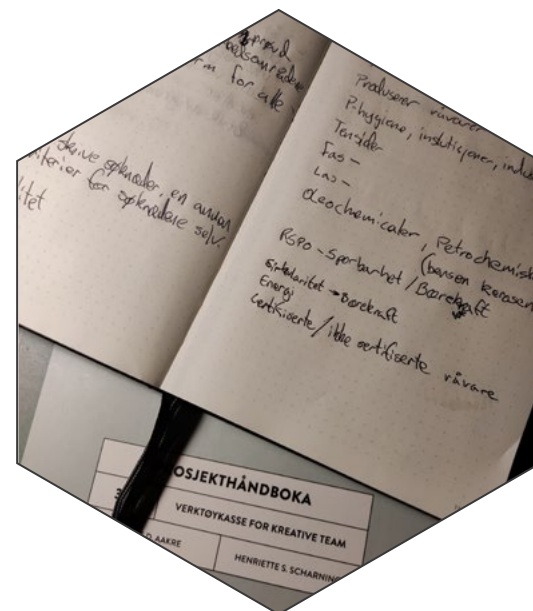 prøvd
arbeidsområdene
rm for alle
skrive søknader, en annen
riterier for søknadene selv.
itet
Produserer råvarer
P.hygiene, institusjoner, indus
Tensider
Fas -
Las -
oleochemicaler, Petrochemisk
(bensen kerasen
RSPO - Sporbarhet / Bærekraft
sirkularitet → Bærekraft
Energi
Certifiserte / ikke certifiserte råvare
OSJEKTHÅNDBOKA
VERKTØYKASSE FOR KREATIVE TEAM
D. AAKRE
HENRIETTE S. SCHARNING